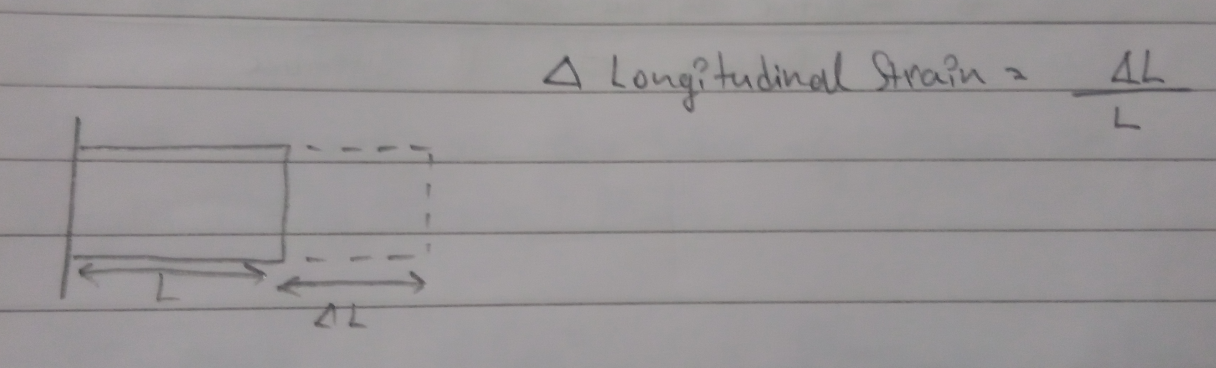 Δ Longitudinal Strain = ΔL
L
L
ΔL